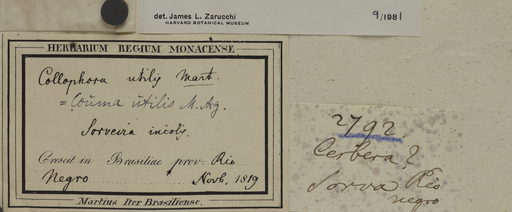 det. James L. Zarucchi 9/1981
HARVARD BOTANICAL MUSEUM
HERBARIUM REGIUM MONACENSE.
Collophora utilis Mart.
= Couma utilis M. Ag.
Sorveira incolis.
Crescit in Brasiliae prov: Rio
Negro Novb. 1819
Martius Iter Brasiliense.
2792
Cerbera?
Sorva Rio
negro